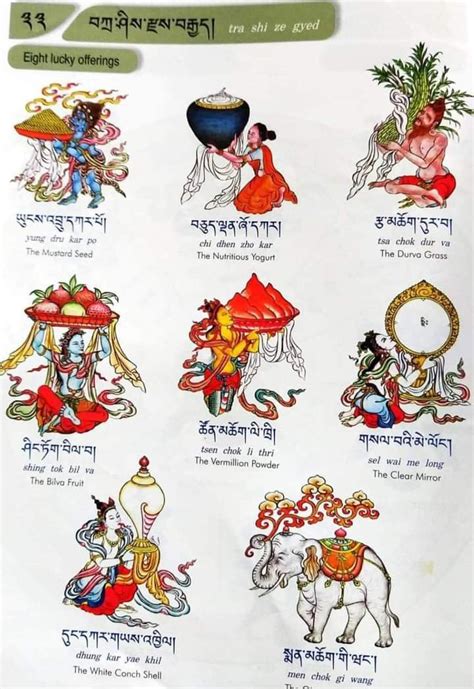 བཀྲ་ཤིས་རྫས་བརྒྱད། tra shi ze gyed
Eight lucky offerings
ཡུངས་འབྲུ་དཀར་པོ།
yung dru kar po
The Mustard Seed
བཅུད་ལྡན་ཞོ་དཀར།
chi dhen zho kar
The Nutritious Yogurt
རྩྭ་མཆོག་དུར་བ།
tsa chok dur va
The Durva Grass
ཤིང་ཏོག་བིལ་བ།
shing tok bil va
The Bilva Fruit
ཚོན་མཆོག་ལི་ཁྲི།
tsen chok li thri
The Vermillion Powder
གསལ་བའི་མེ་ལོང་།
sel wai me long
The Clear Mirror
དུང་དཀར་གཡས་འཁྱིལ།
dhung kar yae khil
The White Conch Shell
སྨན་མཆོག་གི་ཝང་།
men chok gi wang